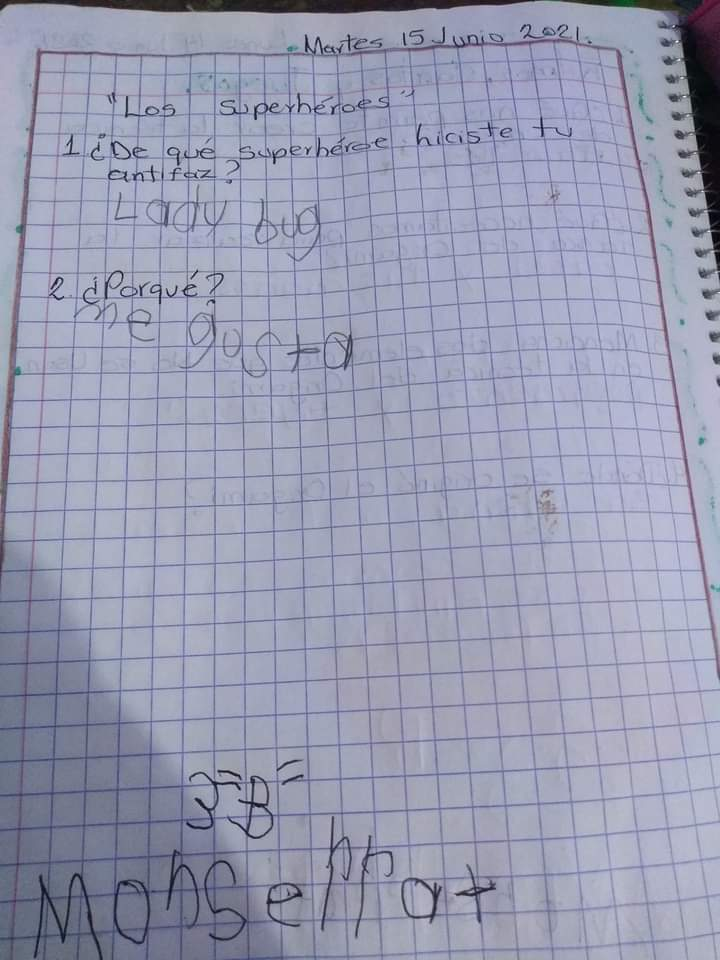 Martes 15 Junio 2021.
"Los superhéroes"
1 ¿De qué superhéroe hiciste tu
antifaz?
Lady bug
2. ¿Porqué?
me gusta
3=B=
Monserrat